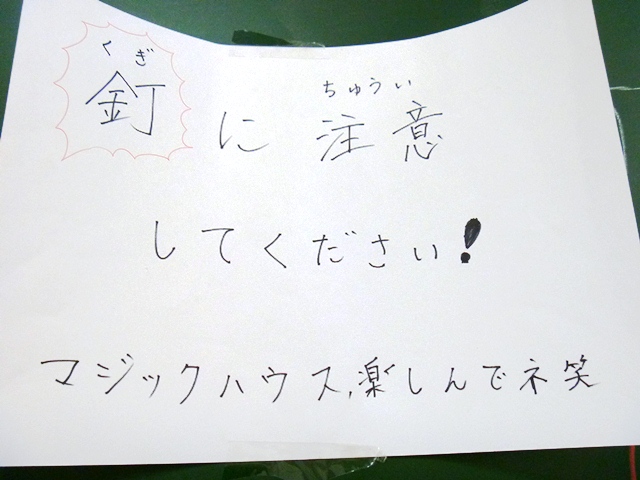 くぎ ちゅうい
釘に注意
してください!
マジックハウス,楽しんでネ笑